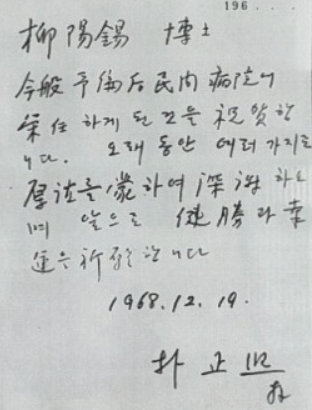 196 . . .
柳陽錫 博士
今般 民間 病院에
榮任 하게 된 것을 祝賀합
니다. 오래 동안 여러 가지로
厚誼를 蒙하여 深謝 하오
며 앞으로 健勝과 幸
運을 祈願합니다
1968.12.19.
朴正熙